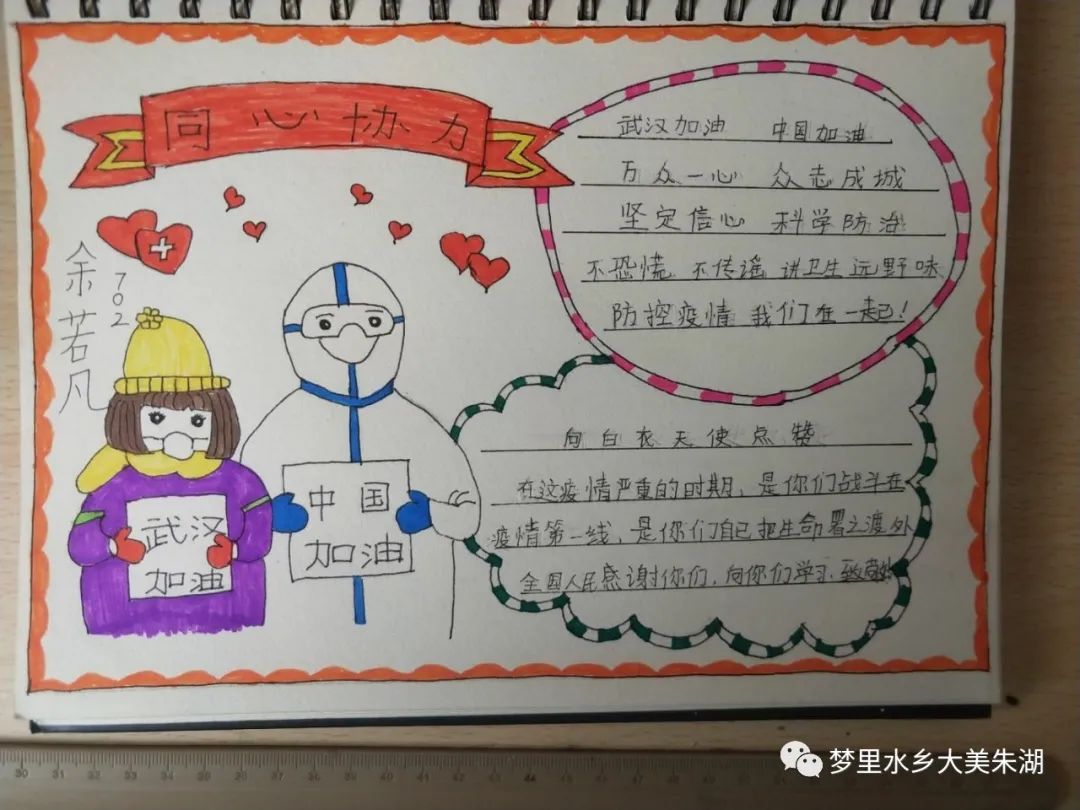 同心协力
武汉加油 中国加油
万众一心 众志成城
坚定信心 科学防治
不恐慌 不传谣 讲卫生 远野味
防控疫情 我们在一起!
余若凡
702
武汉
加油
中国
加油
向白衣天使点赞
在这疫情严重的时期、是你们战斗在
疫情第一线、是你们自己把生命署之渡外
全国人民感谢你们、向你们学习、致敬
梦里水乡大美朱湖
30 31 32 33 34 35 36